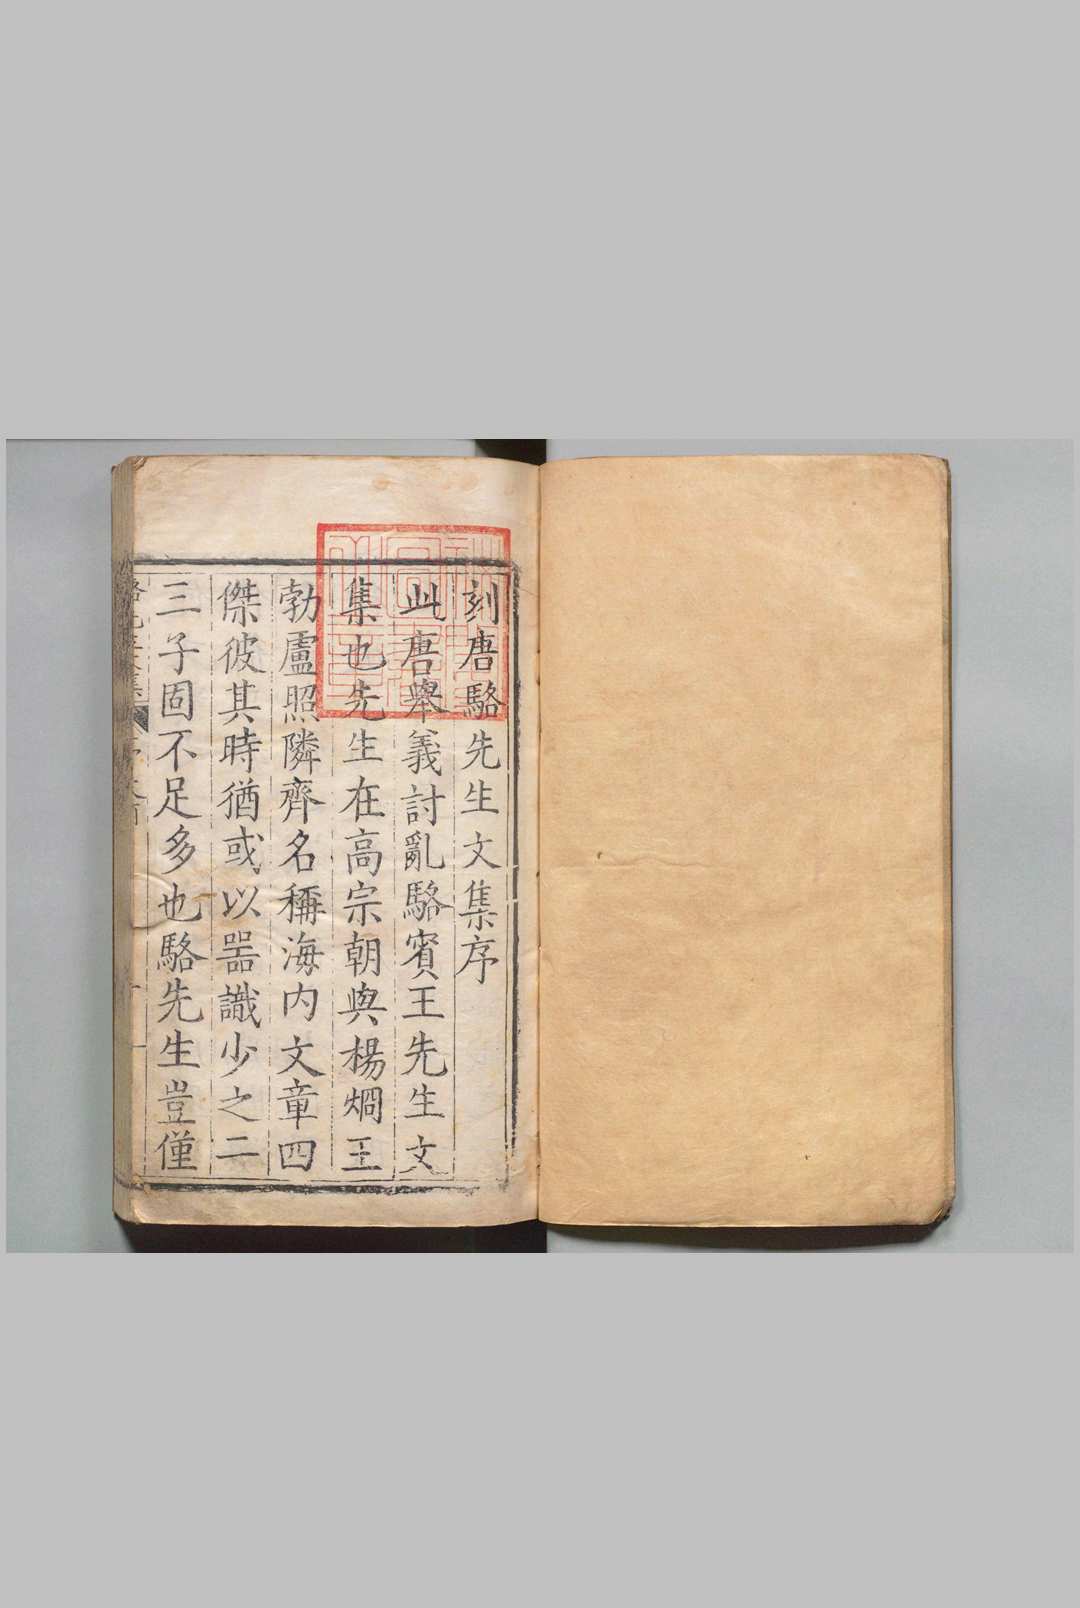 刻唐駱先生文集序
此唐舉義討亂駱賓王先生文
集也先生在高宗朝與楊烱王
勃盧照隣齊名稱海内文章四
傑彼其時猶或以器識少之二
三子固不足多也駱先生豈僅